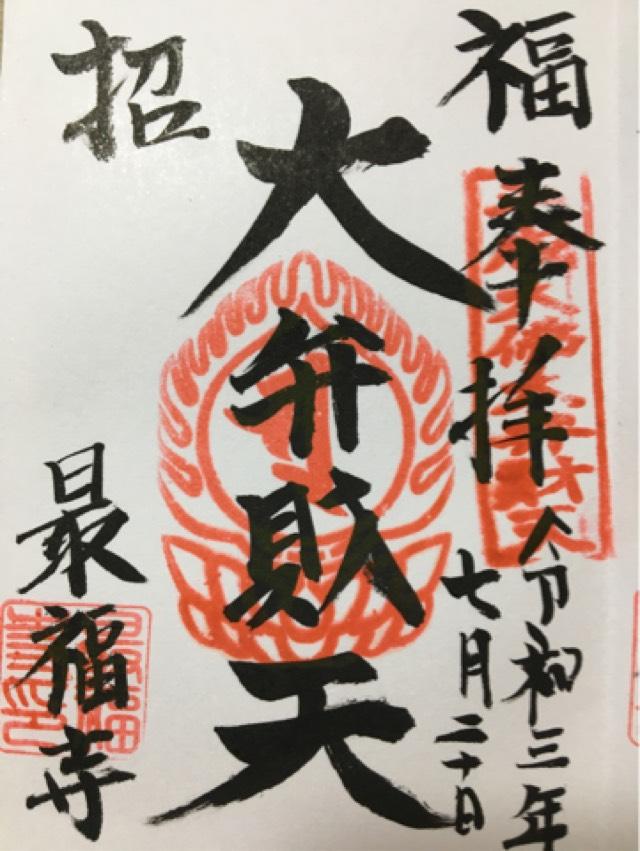 福
奉拝
令和三年
七月二十日
大弁財天
招
最福寺